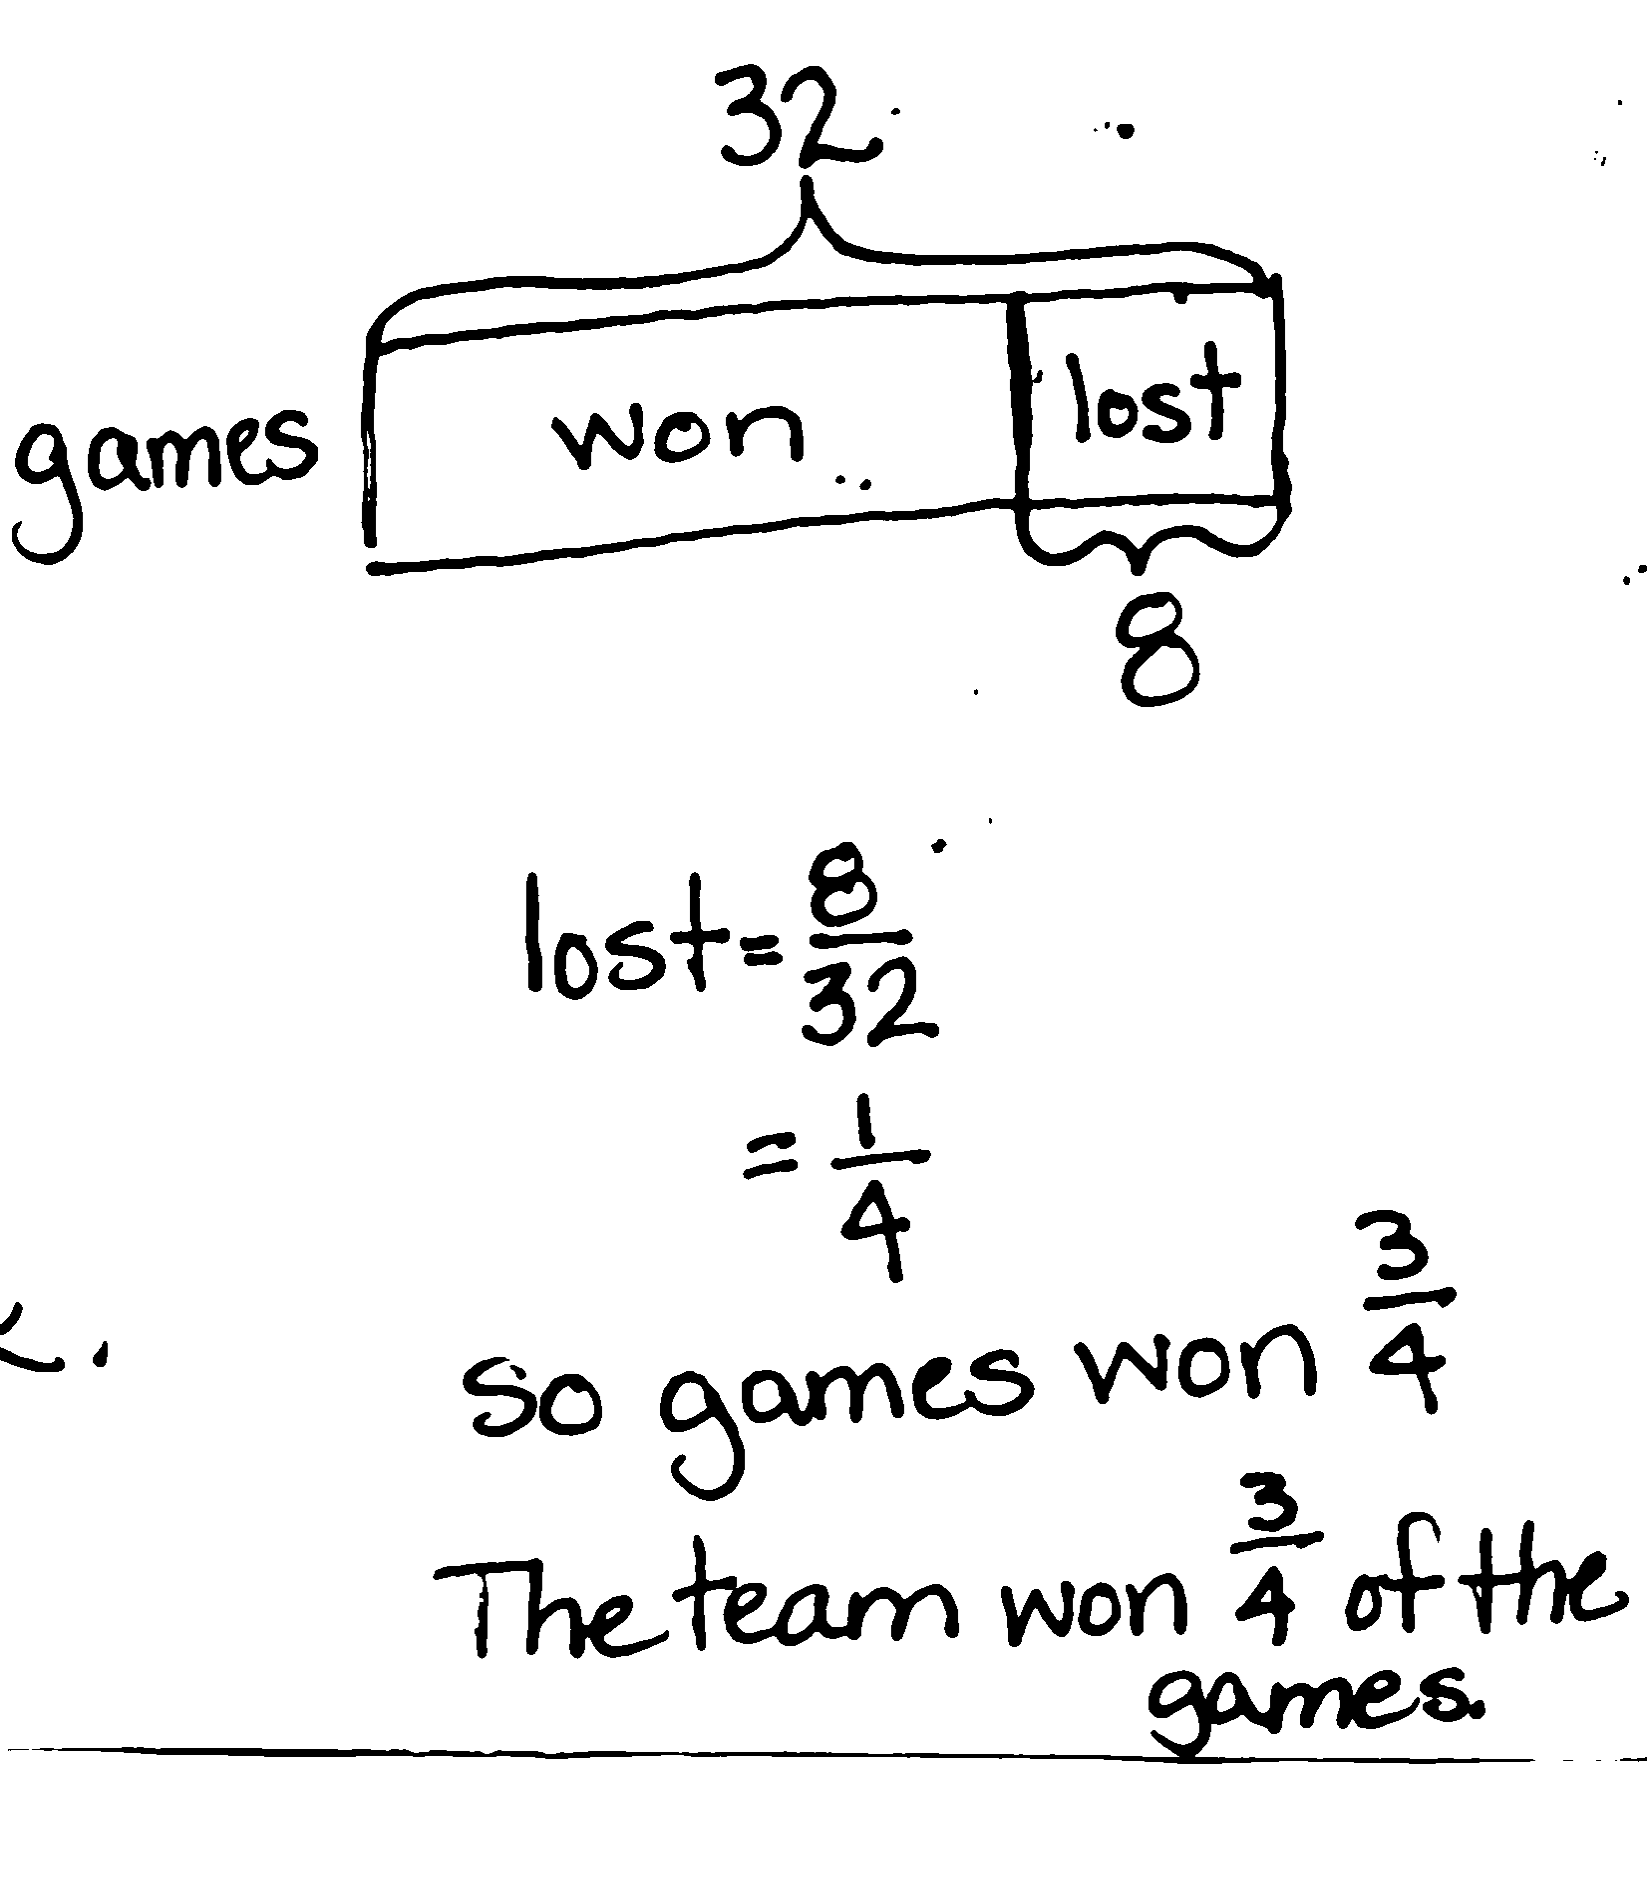 32
games won lost
8
lost = 8/32
= 1/4
So games won 3/4
The team won 3/4 of the
games.